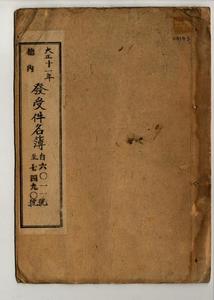 大正十一年
總內
發受件名簿
自六〇一一號
至七四九〇號